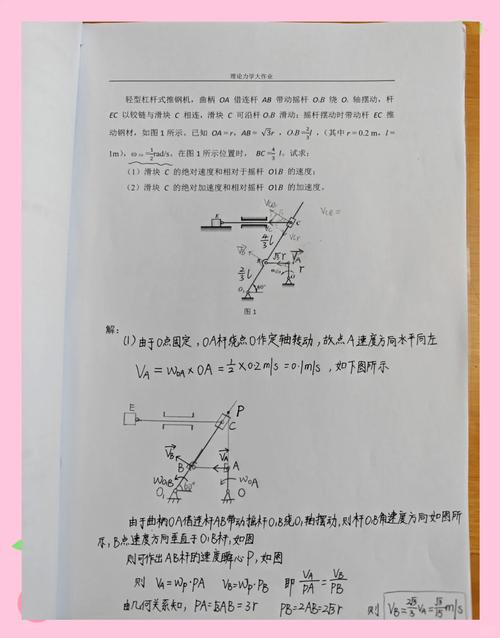 理论力学大作业
轻型杠杆式推钢机，曲柄 OA 借连杆 AB 带动摇杆 O₁B 绕 O₁ 轴摆动，杆
EC 以铰链与滑块 C 相连，滑块 C 可沿杆 O₁B 滑动；摇杆摆动时带动杆 EC 推
动钢材，如图 1 所示。已知 OA=r，AB=√3r，O₁B=2/3 l，（其中 r=0.2 m，l=
1m），ω =1/2rad/s。在图 1 所示位置时， BC=4/3 l。试求：
（1）滑块 C 的绝对速度和相对于摇杆 O1B 的速度；
（2）滑块 C 的绝对加速度和相对摇杆 O1B 的加速度。
VCe=
E
C
4/3 l
VB
√3r
VA
B
A
r
2/3 l
O
O₁
60°
图 1
解：
(1) 由于O点固定，OA杆绕点O作定轴转动，故点A速度方向水平向左
VA = WOA × OA = 1/2 × 0.2 m/s = 0.1m/s ，如下图所示
E
P
C
VB
VA
B
A
WO₁B
WOA
60°
O₁
O
由于曲柄OA借连杆AB带动摇杆O₁B绕O₁轴摆动，则杆O₁B角速度方向如图所
示，B点速度方向垂直于O₁B杆，如图
则可作出AB杆的速度瞬心P，如图
则 VA = Wp·PA VB = Wp·PB 即 VA/PA = VB/PB
由几何关系知，PA=√3AB=3r PB=2AB=2√3r 则 VB = 2√3/3 VA = √3/15 m/s